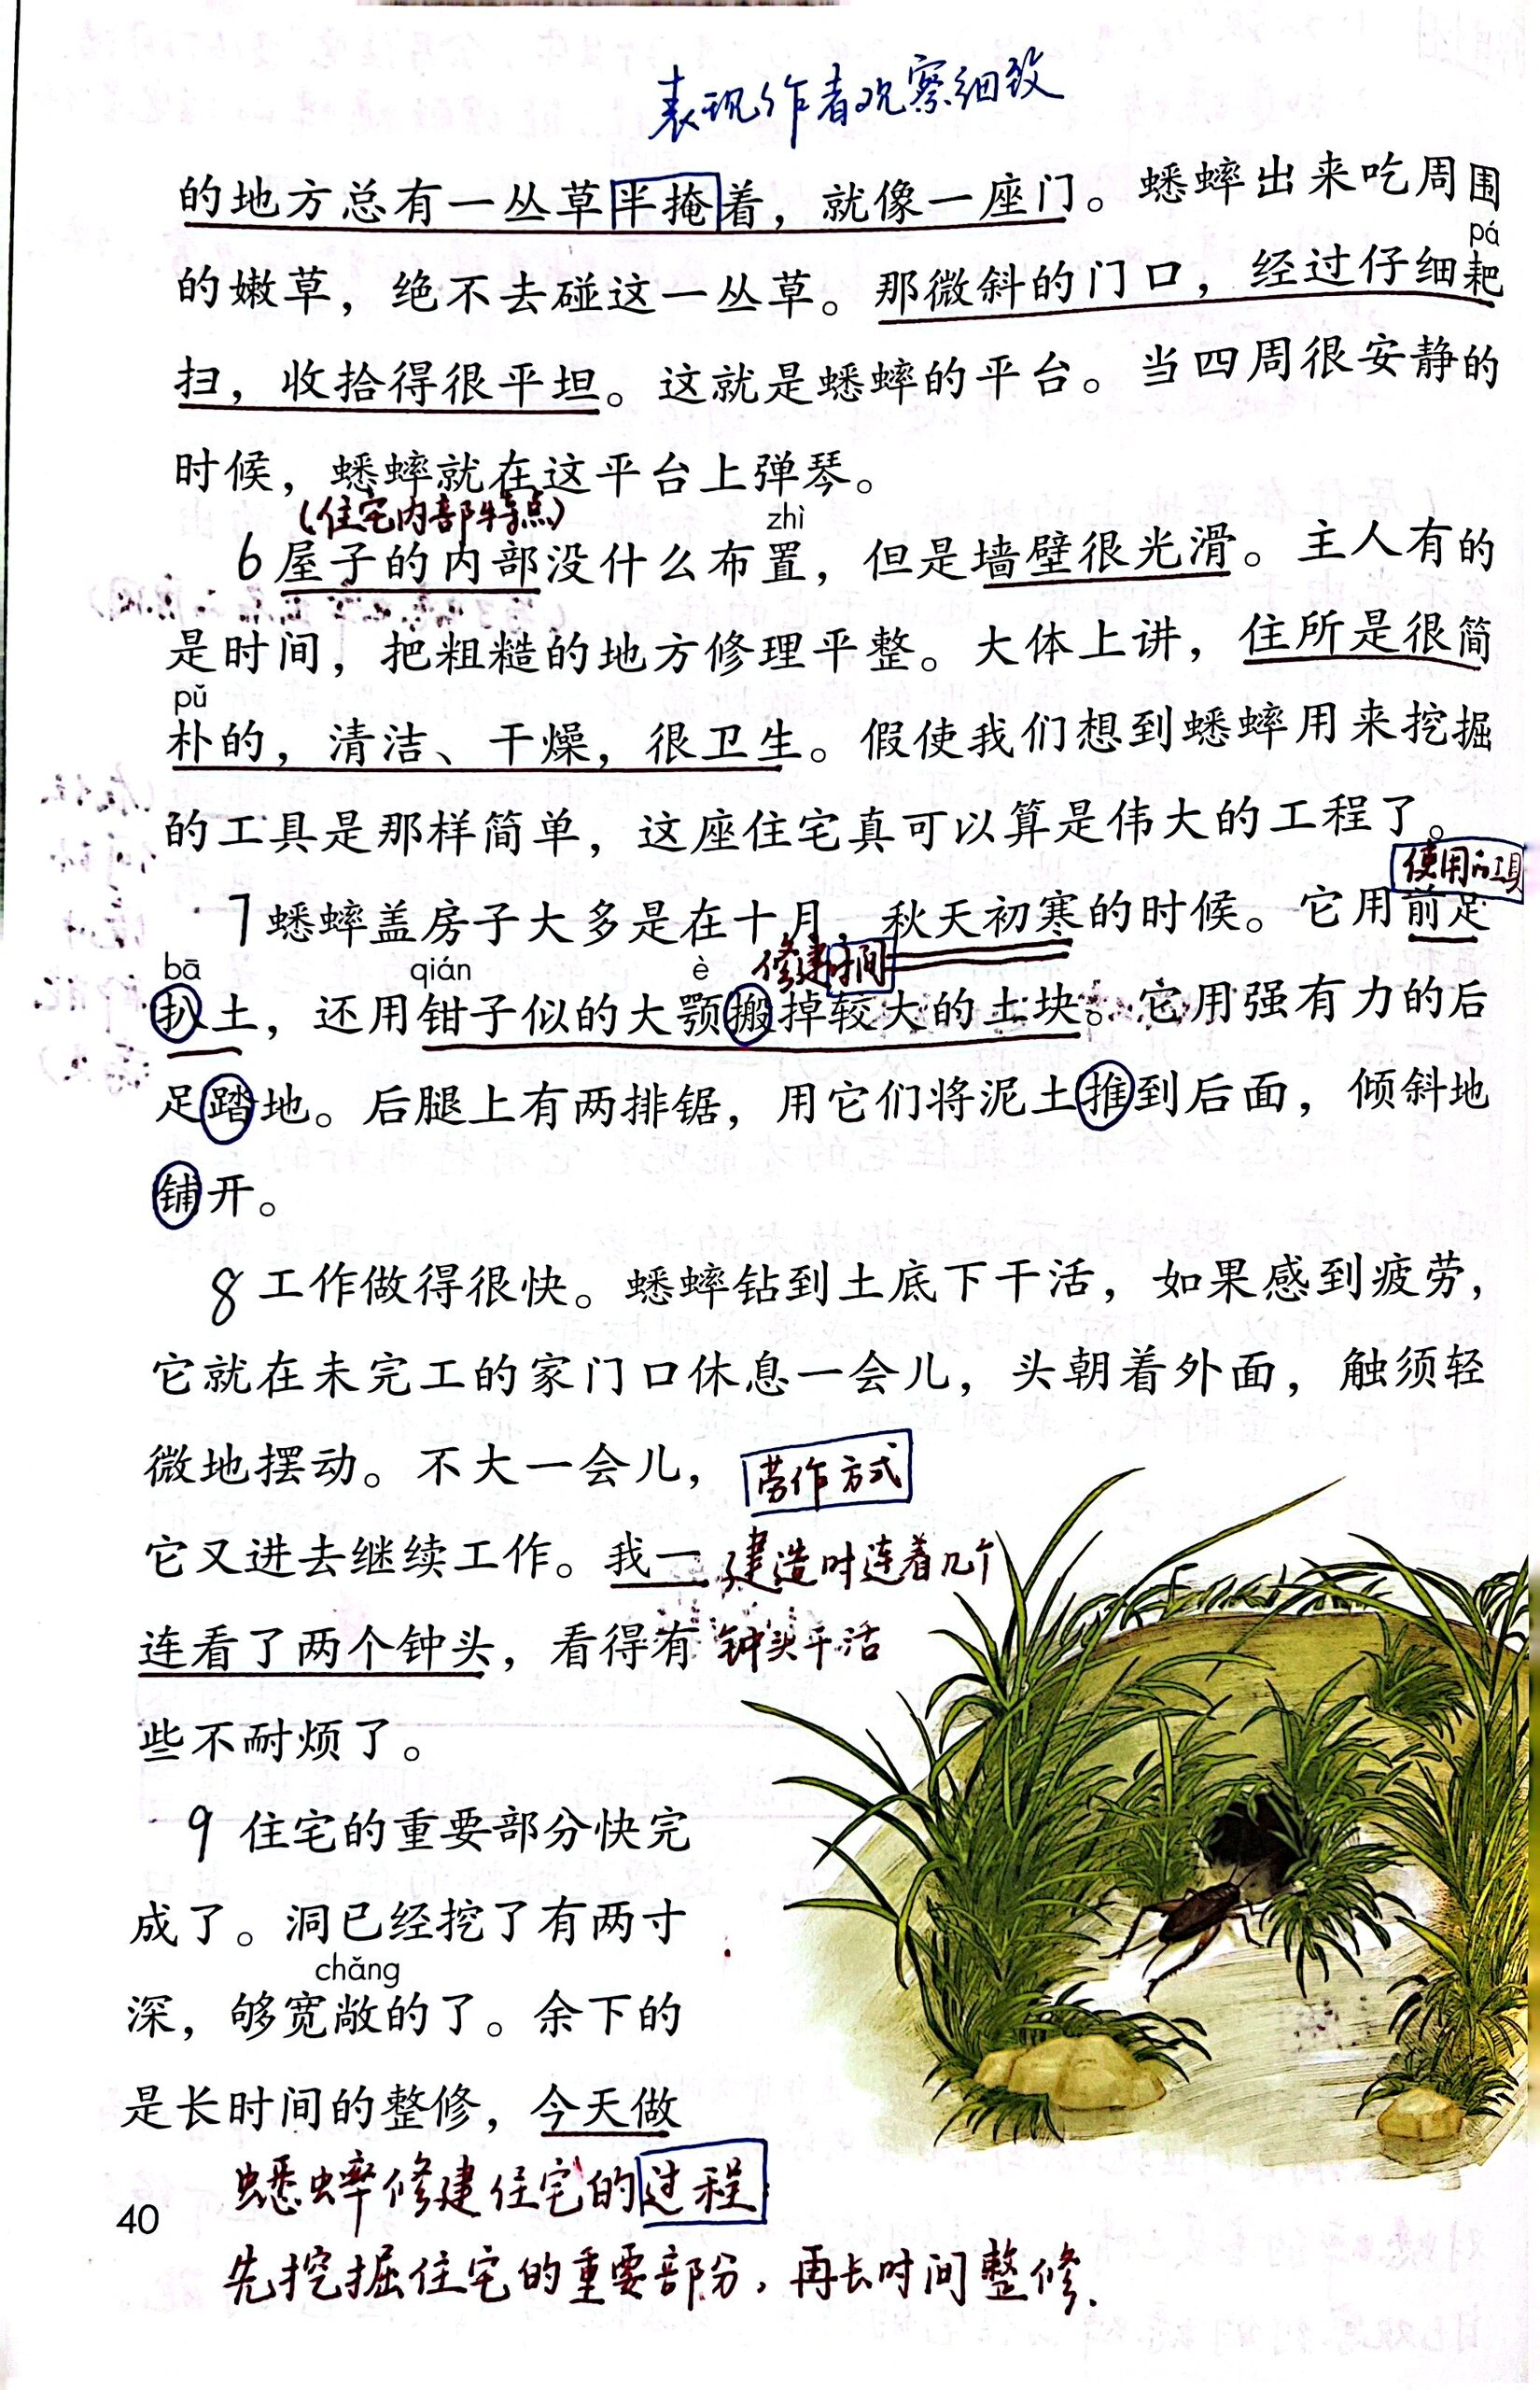 表现作者观察细致
的地方总有一丛草半掩着，就像一座门。蟋蟀出来吃周围
pá
的嫩草，绝不去碰这一丛草。那微斜的门口，经过仔细耙
扫，收拾得很平坦。这就是蟋蟀的平台。当四周很安静的
时候，蟋蟀就在这平台上弹琴。
（住宅内部特点）
zhì
6 屋子的内部没什么布置，但是墙壁很光滑。主人有的
是时间，把粗糙的地方修理平整。大体上讲，住所是很简
pǔ
朴的，清洁、干燥，很卫生。假使我们想到蟋蟀用来挖掘
的工具是那样简单，这座住宅真可以算是伟大的工程了。
使用的工具
7 蟋蟀盖房子大多是在十月，秋天初寒的时候。它用前足
修建时间
bā qián è
扒土，还用钳子似的大颚搬掉较大的土块。它用强有力的后
足踏地。后腿上有两排锯，用它们将泥土推到后面，倾斜地
铺开。
8 工作做得很快。蟋蟀钻到土底下干活，如果感到疲劳，
它就在未完工的家门口休息一会儿，头朝着外面，触须轻
微地摆动。不大一会儿，
劳作方式
它又进去继续工作。我一
建造时连着几个
连看了两个钟头，看得有
钟头干活
些不耐烦了。
9 住宅的重要部分快完
成了。洞已经挖了有两寸
chǎng
深，够宽敞的了。余下的
是长时间的整修，今天做
蟋蟀修建住宅的过程
40
先挖掘住宅的重要部分，再长时间整修.